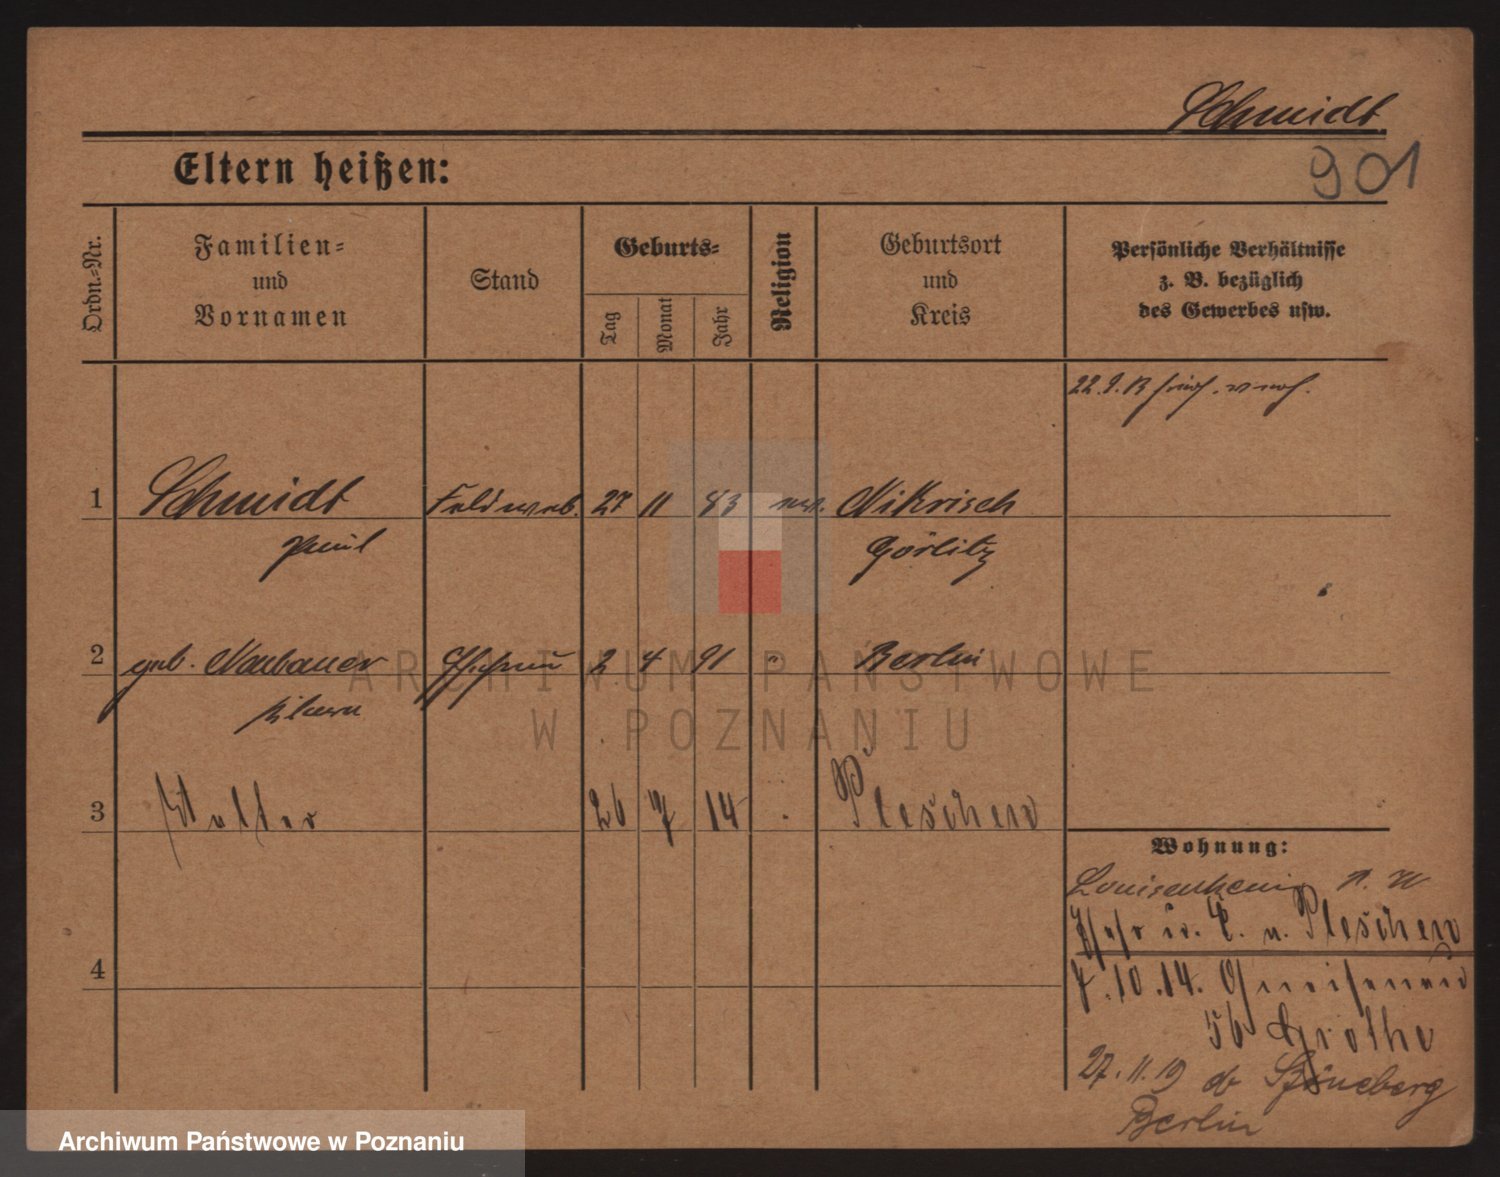 Schmidt.
901
Eltern heißen:
Ordn.-Nr.
Familien-
und
Vornamen
Stand
Geburts-
Tag
Monat
Jahr
Religion
Geburtsort
und
Kreis
Persönliche Verhältnisse
z. B. bezüglich
des Gewerbes usw.
22. 9. 13
1 Schmidt Feldweb. 27 11 83 Nikrisch
Paul Görlitz
2 geb. Neubauer Ehefrau 2 4 91 " Berlin
Klara
3 Walter 26 7 14 Pleschen
4
Wohnung:
Louisenhain
Pleschen
7.10.14. Gneisenau
56 Grothe
27.11.19 Schöneberg
Berlin
ARCHIWUM PAŃSTWOWE
W POZNANIU
Archiwum Państwowe w Poznaniu